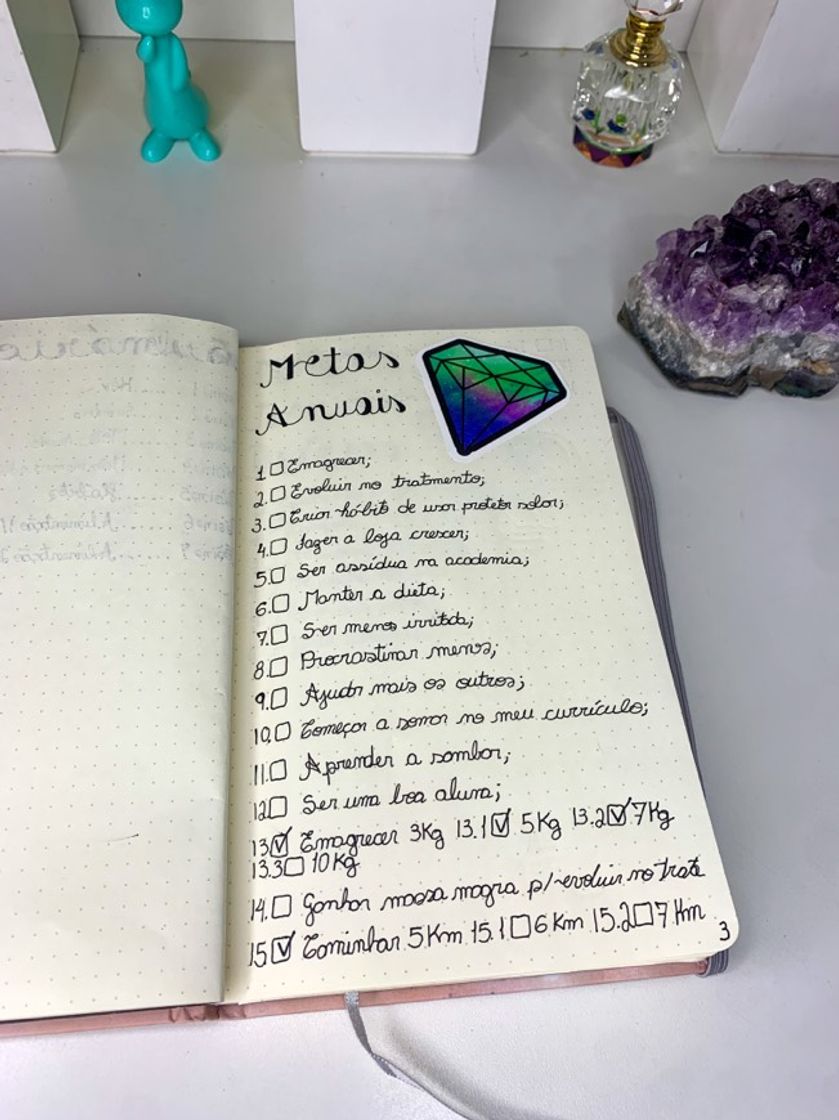 Metas
Anuais
1 ☐ Emagrecer;
2. ☐ Evoluir no tratamento;
3. ☐ Criar hábito de usar protetor solar;
4. ☐ Fazer a loja crescer;
5. ☐ Ser assídua na academia;
6. ☐ Manter a dieta;
7. ☐ Ser menos irritada;
8. ☐ Procrastinar menos;
9. ☐ Ajudar mais os outros;
10. ☐ Começar a somar no meu currículo;
11. ☐ Aprender a sambar;
12 ☐ Ser uma boa aluna;
13 ☑ Emagrecer 3Kg 13.1 ☑ 5Kg 13.2 ☑ 7Kg
13.3 ☐ 10Kg
14. ☐ Ganhar massa magra p/ evoluir no trata
15 ☑ Caminhar 5Km 15.1 ☐ 6Km 15.2 ☐ 7Km
3